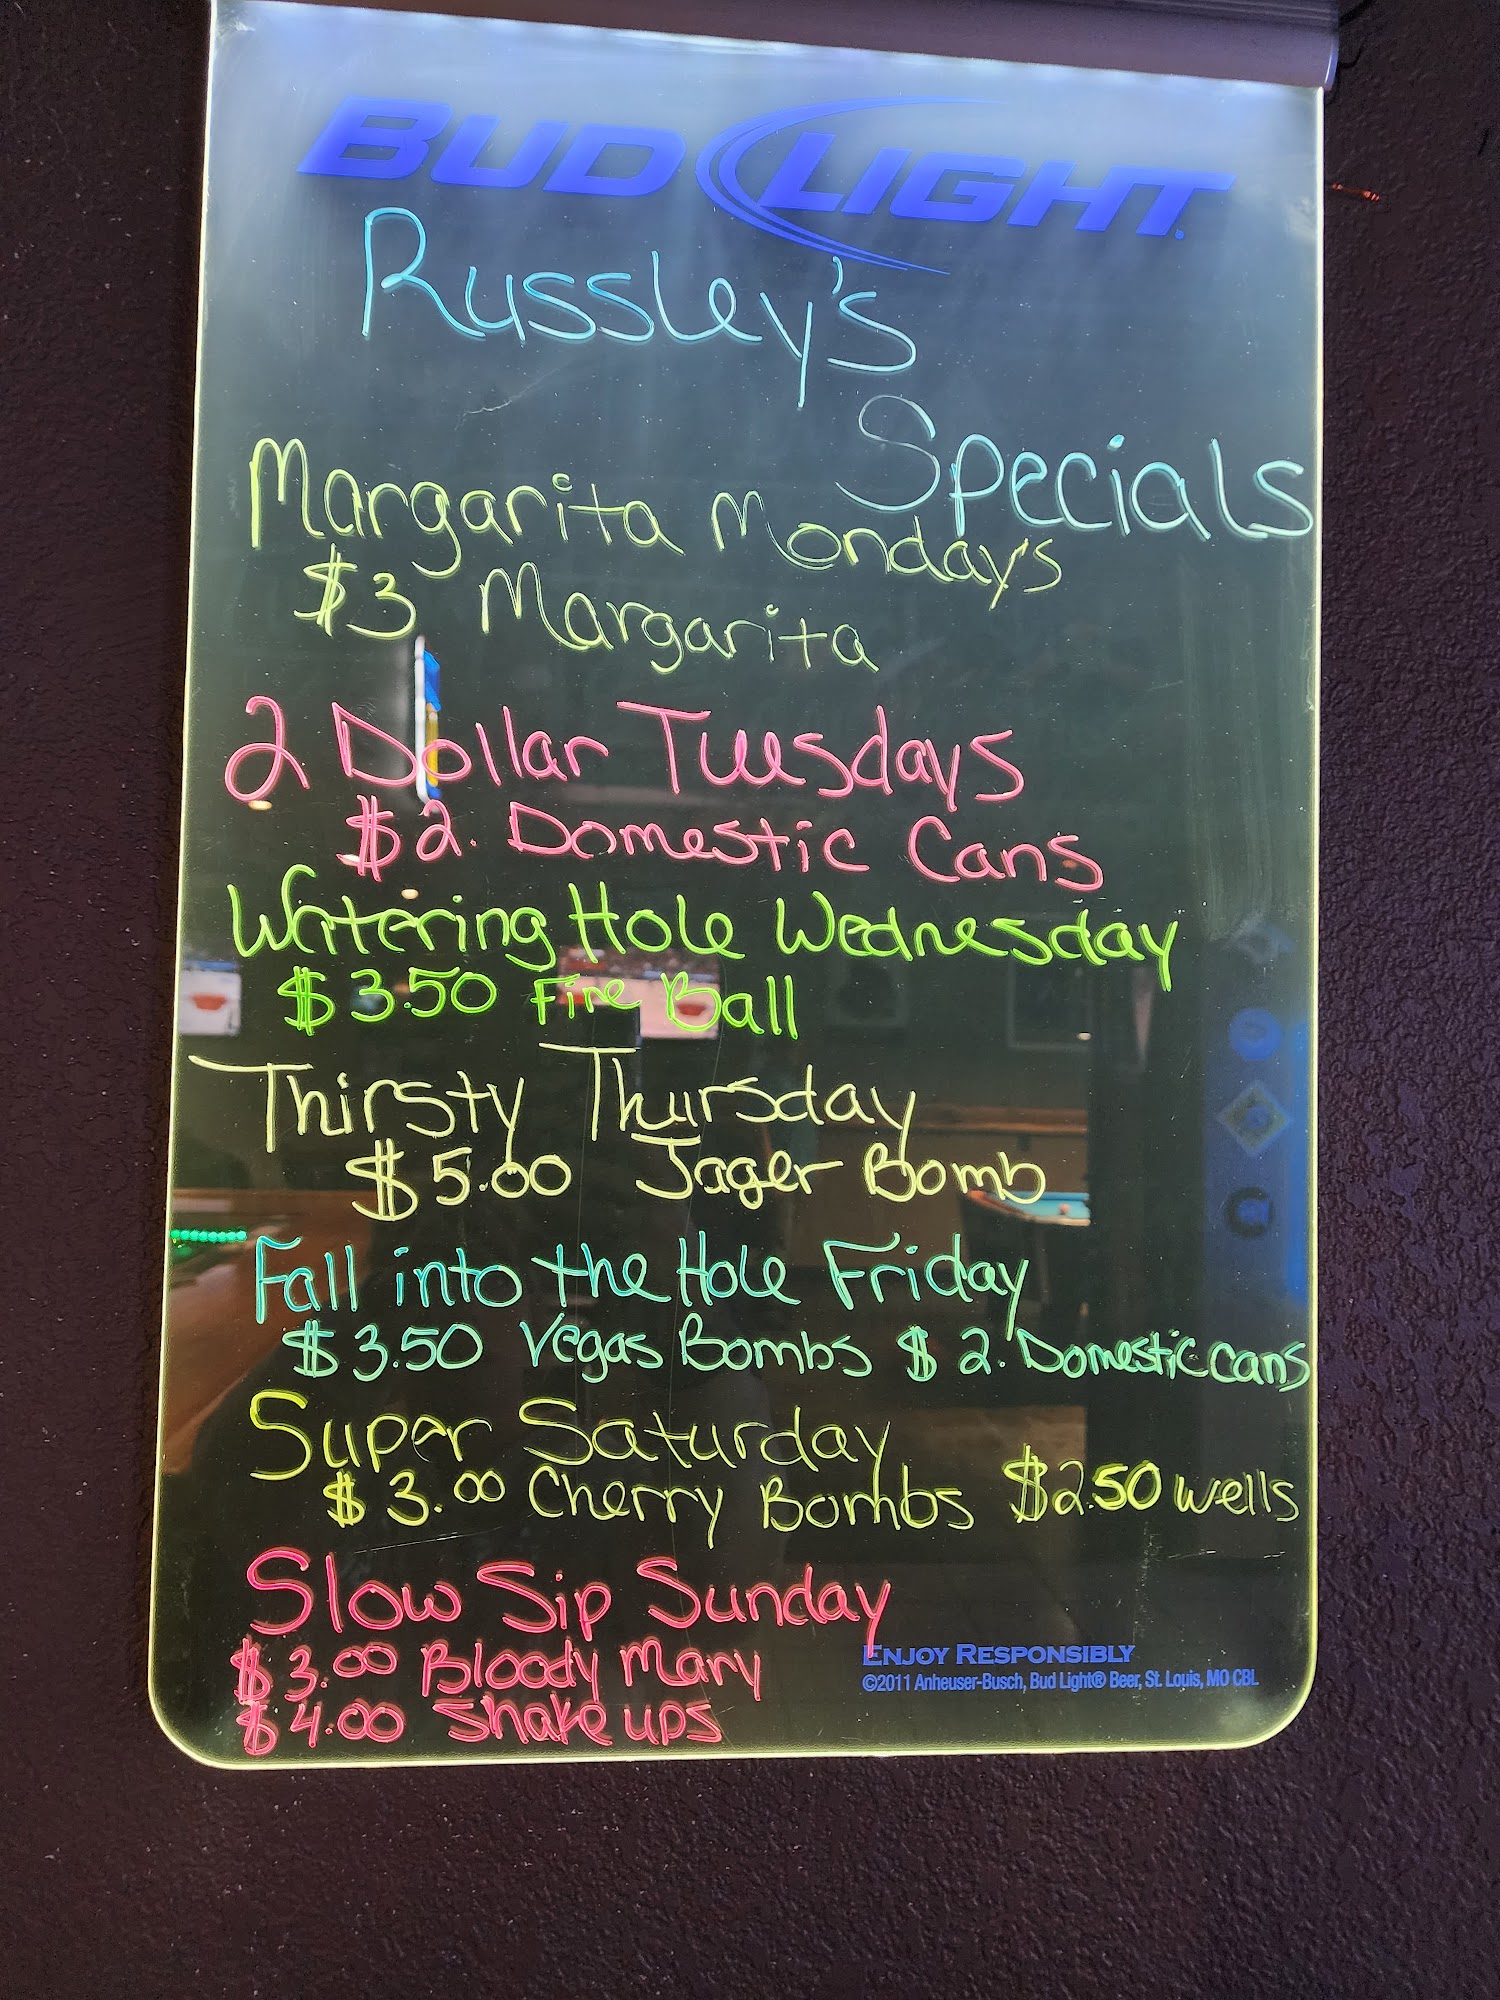 BUD LIGHT
Russley's
Specials
Margarita Mondays
$3 Margarita
2 Dollar Tuesdays
$2. Domestic Cans
Watering Hole Wednesday
$3.50 Fire Ball
Thirsty Thursday
$5.00 Jager Bomb
Fall into the Hole Friday
$3.50 Vegas Bombs $2. Domestic cans
Super Saturday
$3.00 Cherry Bombs $2.50 wells
Slow Sip Sunday
$3.00 Bloody Mary
$4.00 Shake ups
ENJOY RESPONSIBLY
©2011 Anheuser-Busch, Bud Light® Beer, St. Louis, MO CBL